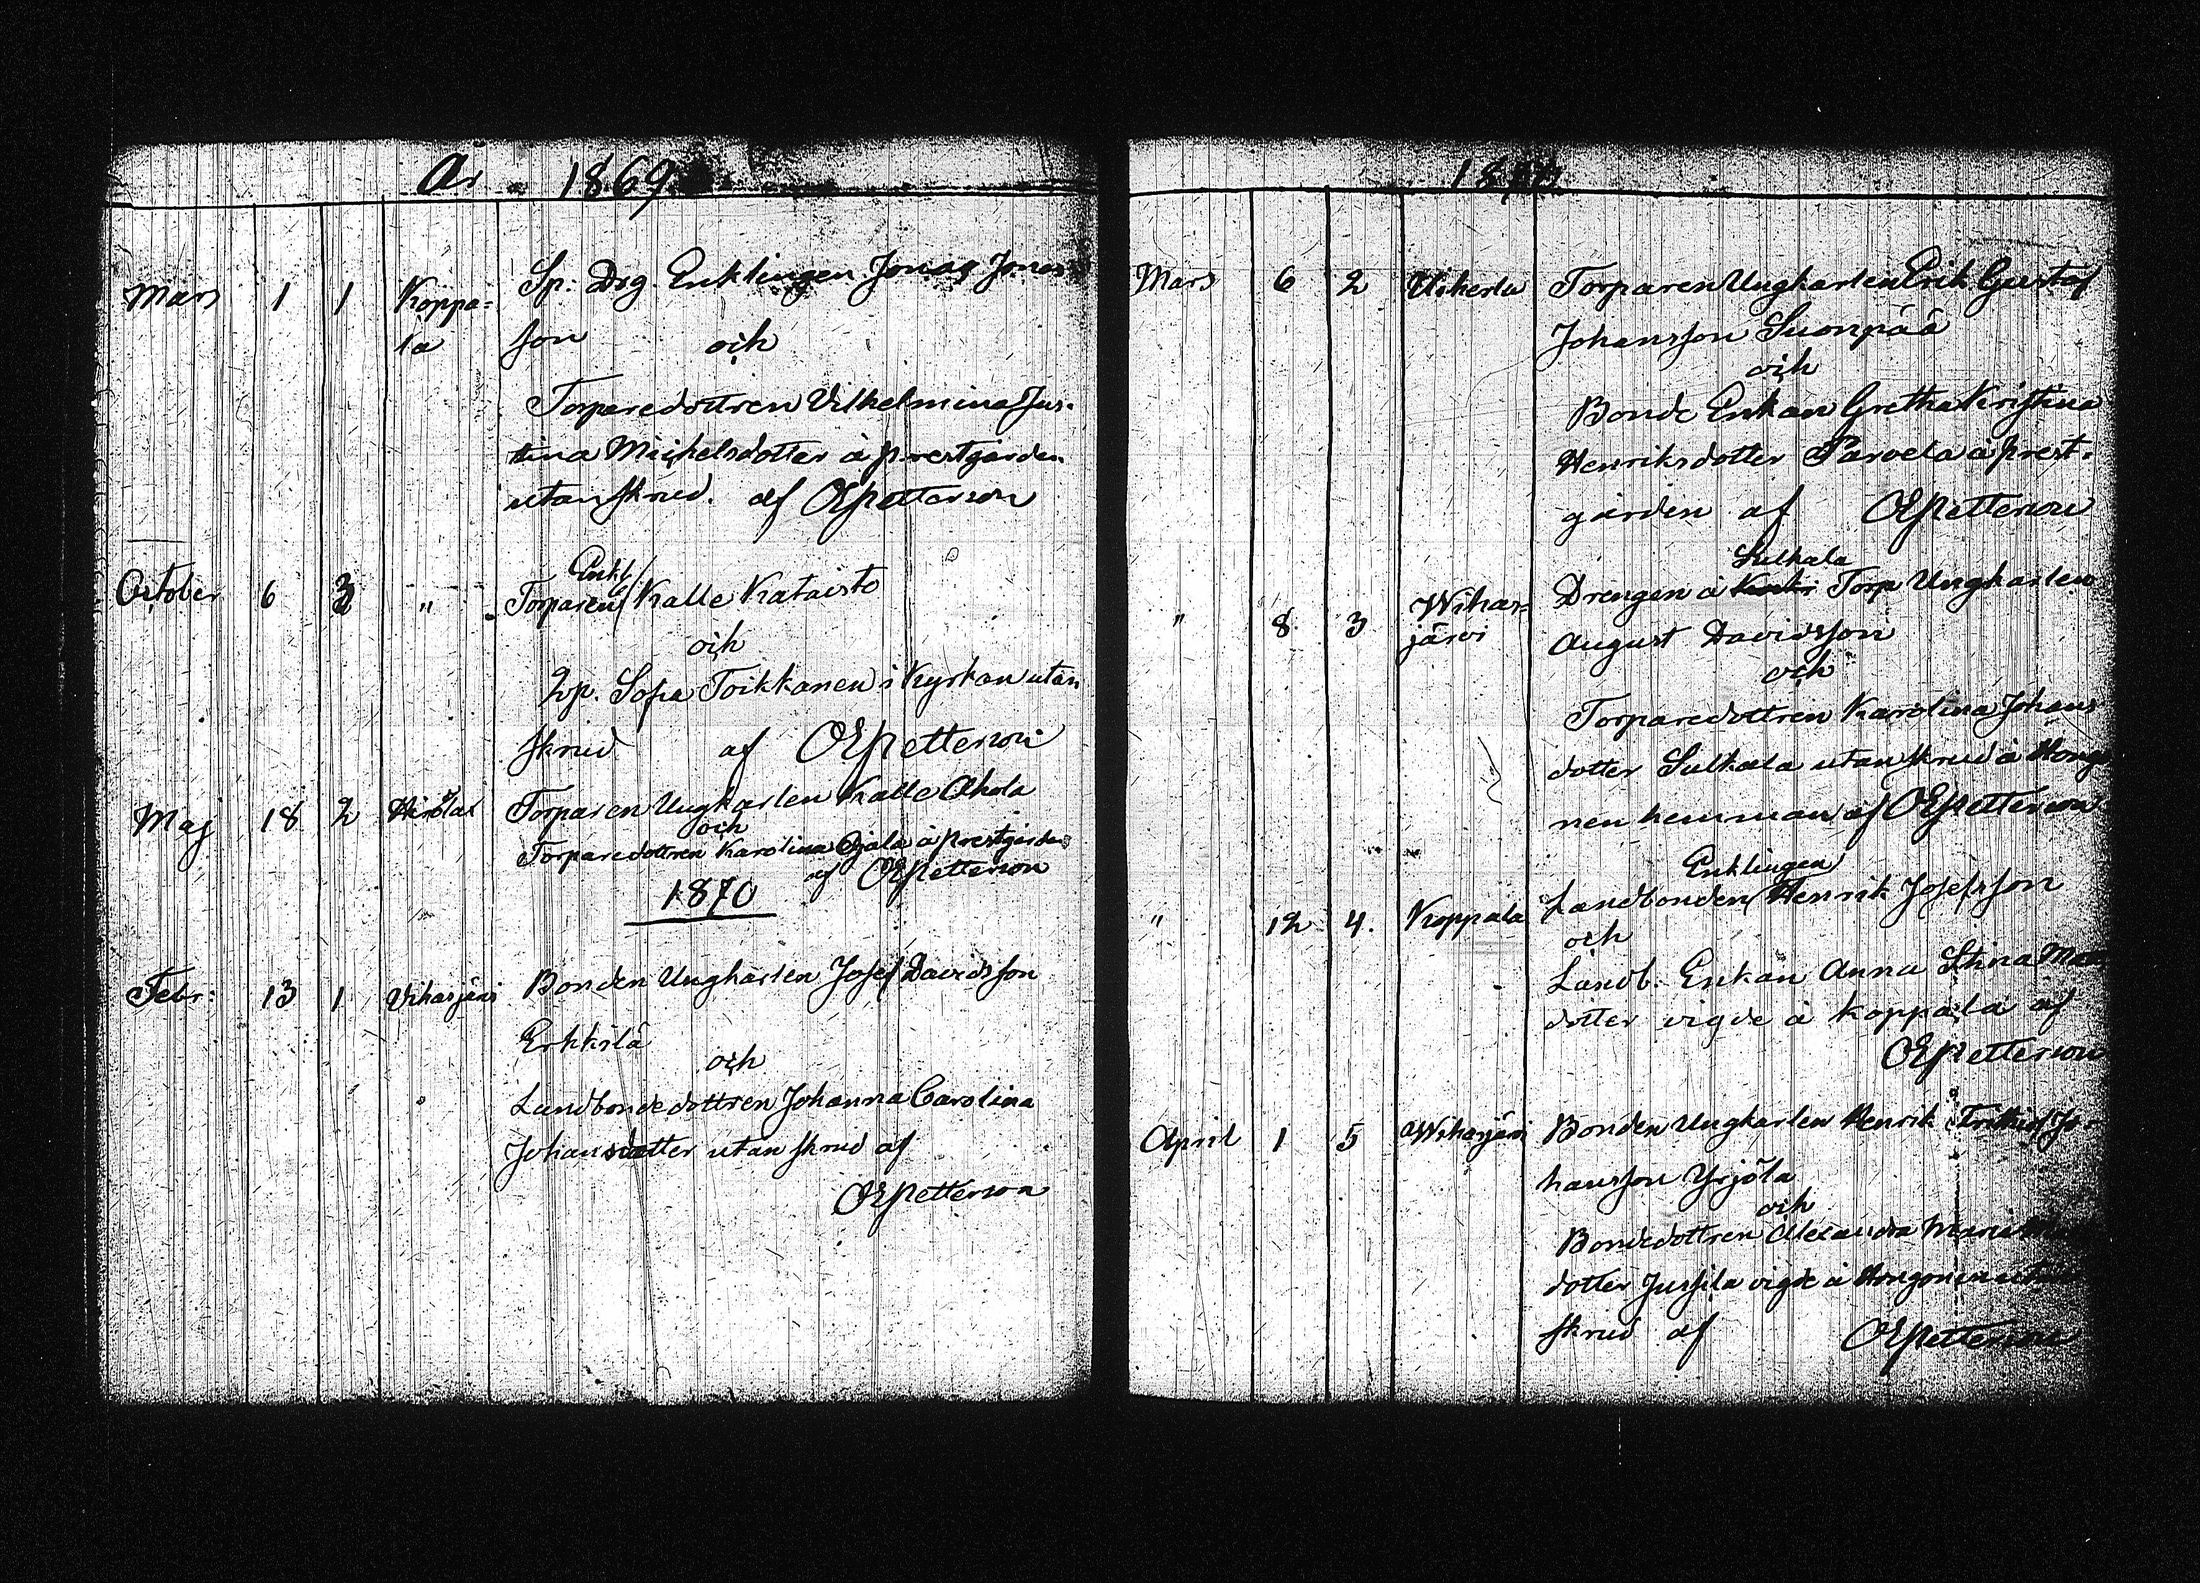 År 1869
Mars 1 1 Koppa= Sp. Drg. Enklingen Jonas Jonas
la son och
Torparedottren Vilhelmina Jus-
tina Michelsdotter å prestgården
utan skrud. af OEPetterson
Enkl.
October 6 3 " Torparen Kalle Kataisto
och
Sofia Toikkanen i Kyrkan utan
skrud af OEPetterson
Maj 18 2 Torparen Ungkarlen Kalle Ahola
och
Torparedottren Karolina Ojala å prestgården
af OEPetterson
1870
Febr: 13 1 Vihasjärvi Bonden Ungkarlen Josef Davidsson
Erkkilä
och
Landbondedottren Johanna Carolina
Johansdotter utan skrud af
OEPetterson
1870
Mars 6 2 Uskerla Torparen Ungkarlen Erik Gustaf
Johansson Suonpää
och
Bonde Enkan Gretha Kristina
Henriksdotter Parvela å prest-
gården af OEPetterson
Sulkala
" 8 3 Wihas= Drengen å Torp Ungkarlen
järvi August Davidsson
och
Torparedottren Karolina Johans
dotter Sulkala utan skrud å Hongo
nen hemman af OEPetterson
Enklingen
" 12 4. Koppala Landbonden Henrik Josefsson
och
Landb. Enkan Anna Stina
dotter vigde å Koppala af
OEPetterson
April 1 5 Wihasjärvi Bonden Ungkarlen Henrik Frithiof Jo-
hansson Yrjölä
och
Bondedottren Alexandra Maria
dotter Jussila vigde å Hongonen utan
skrud af OEPetterson